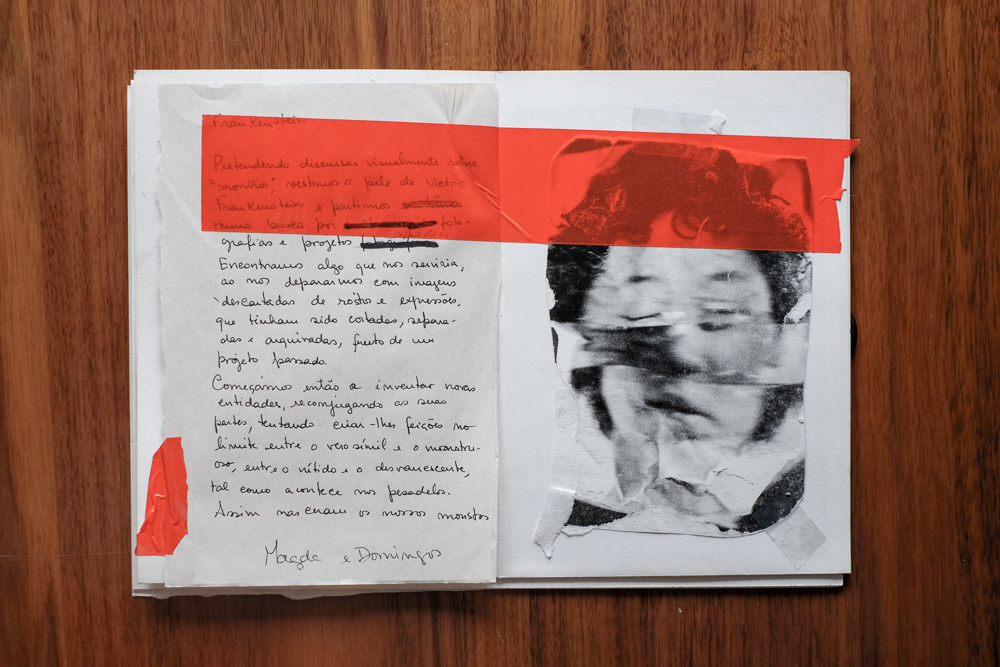 Frankenstein
Pretendendo discursar visualmente sobre
"montros", vestimos a pele de Victor
Frankenstein e partimos
numa busca por foto-
grafias e projetos
Encontramos algo que nos serviria,
ao nos depararmos com imagens
descartadas de rostos e expressões,
que tinham sido cortadas, separa-
das e arquivadas, fruto de um
projeto passado.
Começámos então a inventar novas
entidades, reconjugando as suas
partes, tentando criar-lhes feições no
limite entre o verosímil e o monstru-
oso, entre o nítido e o desvanescente,
tal como acontece nos pesadelos.
Assim nasceram os nossos monstos
Magda e Domingos